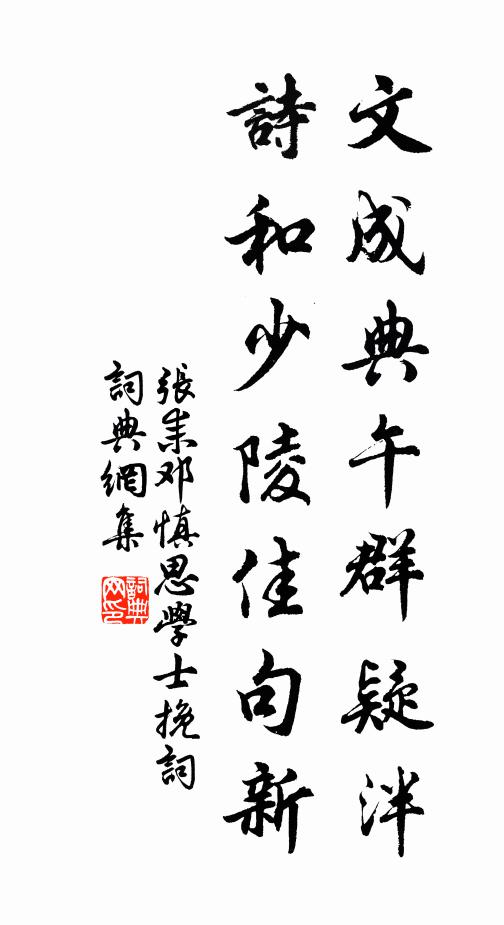 文成典午群疑泮
詩和少陵佳句新
張耒邓慎思學士挽詞
詞典網集
詞典网印